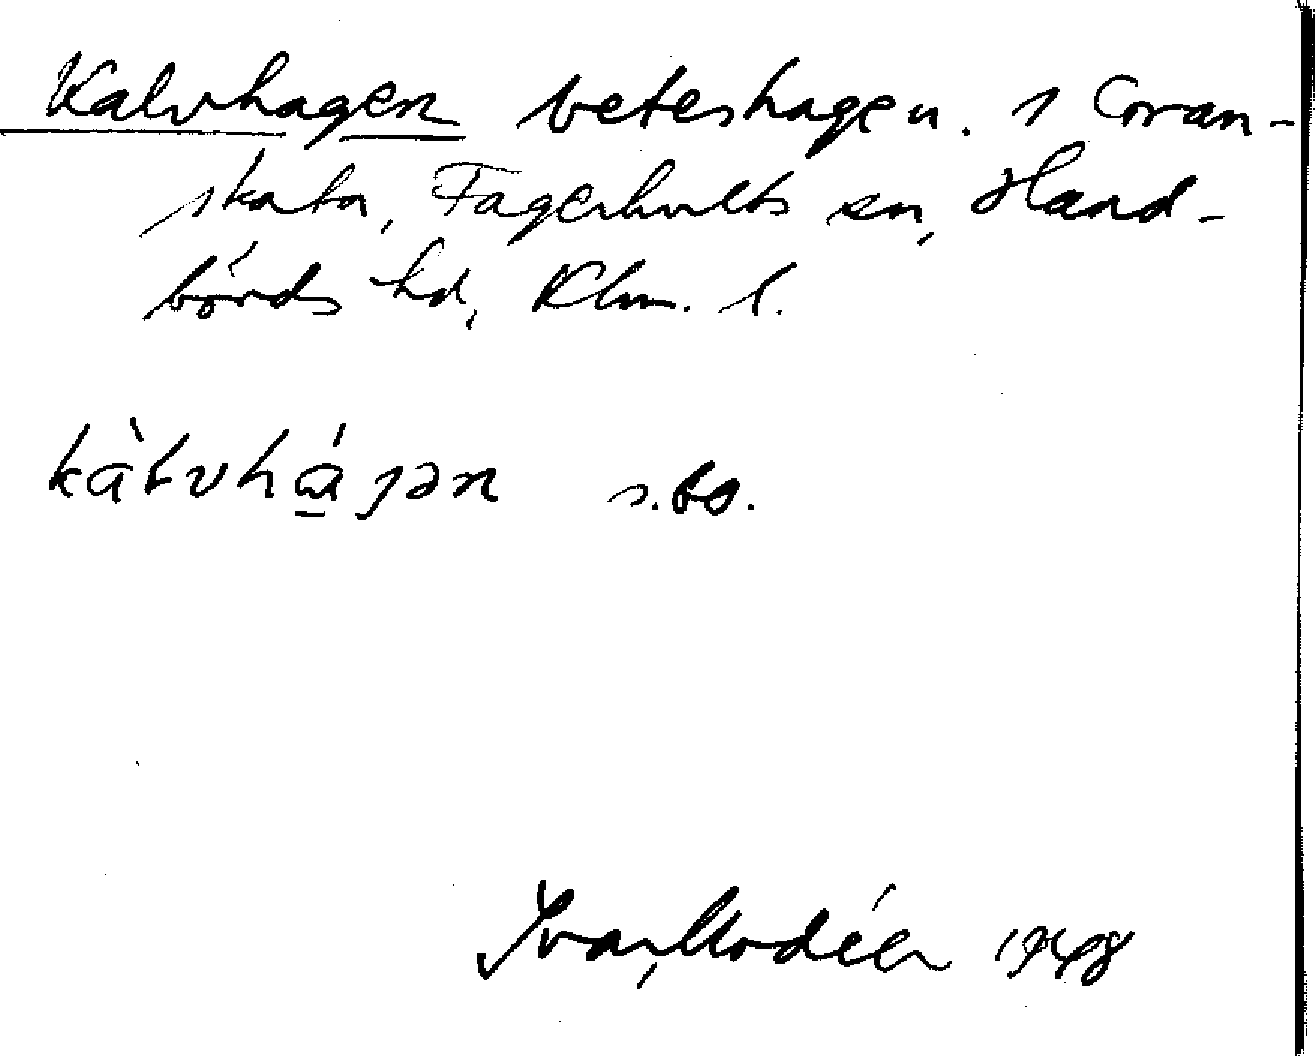 Kalvhagen beteshagen. 1 Gran-
skata, Fagerhults sn, Hand-
börds hd, Klm. l.
kàłvhágən s.bo.
Ivar Modéer 1948